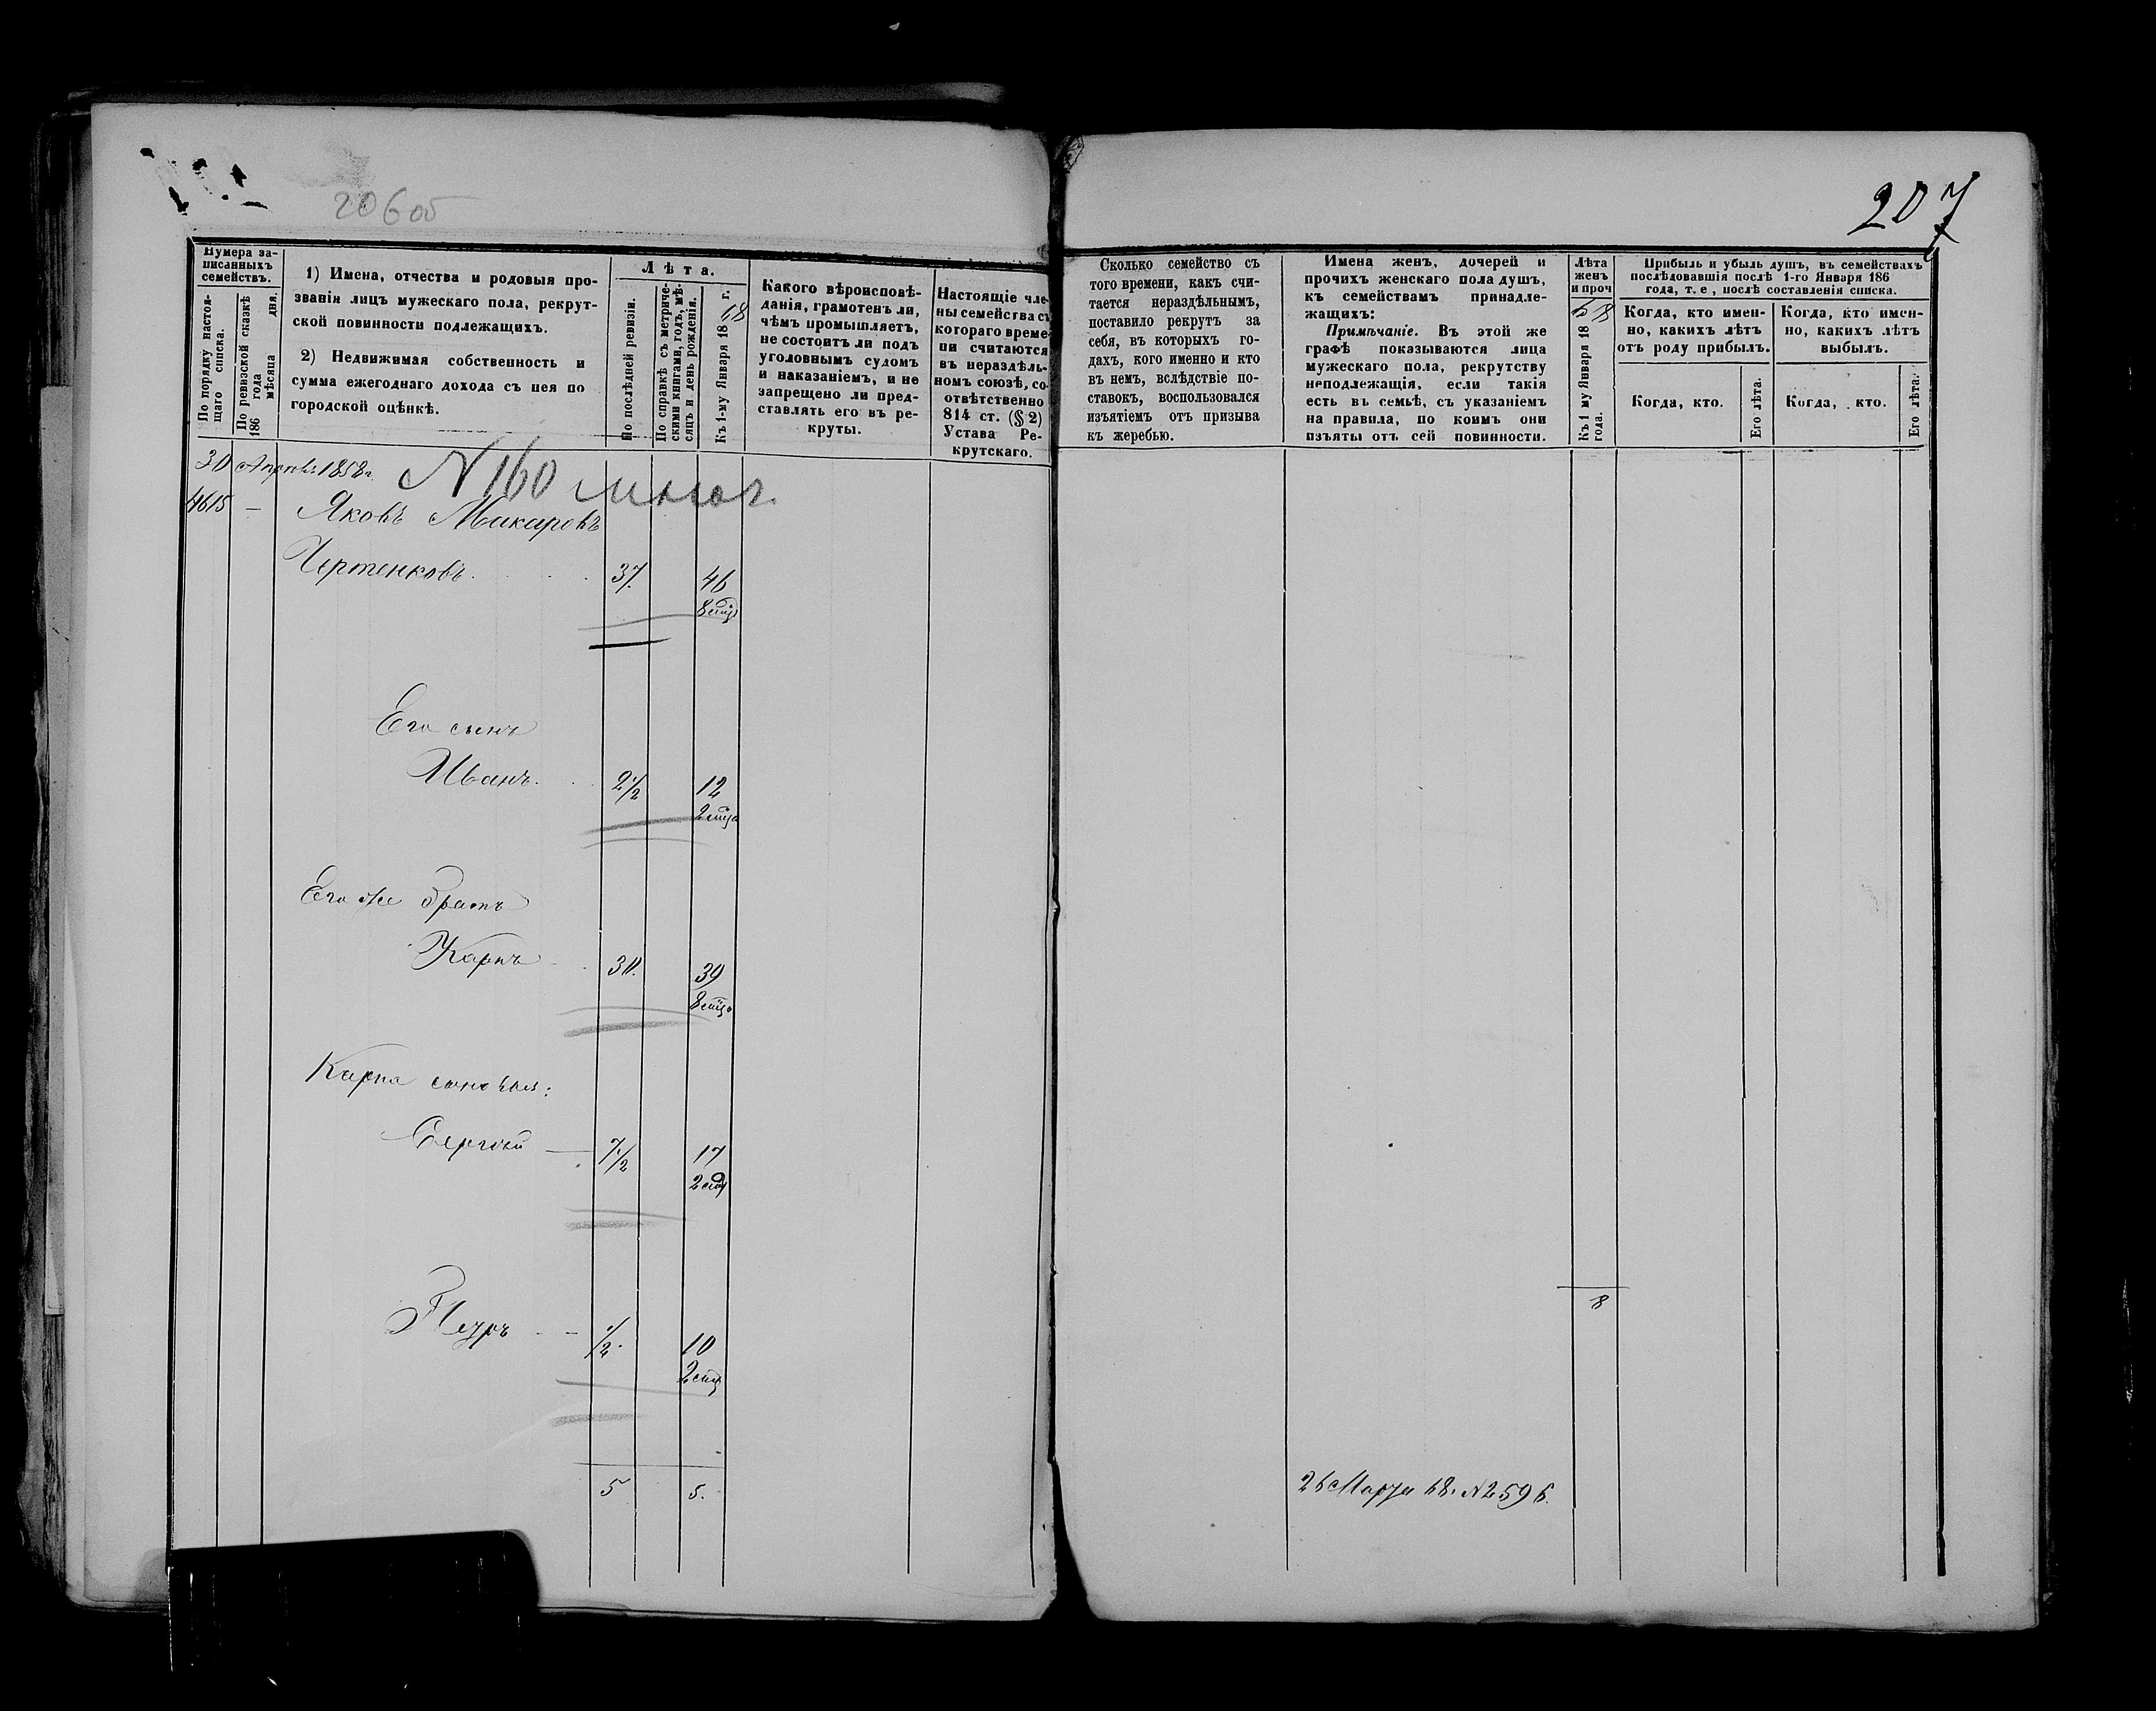 206об
207
Нумера за-
писанныхъ
семействъ.
По порядку настоя-
щаго списка.
По ревизской сказкѣ
186 года мѣсяца дня.
1) Имена, отчества и родовыя про-
званія лицъ мужескаго пола, рекрут-
ской повинности подлежащихъ.
2) Недвижимая собственность и
сумма ежегоднаго дохода съ нея по
городской оцѣнкѣ.
Лѣта.
По послѣдней ревизіи.
По справкѣ съ метриче-
скими книгами, годъ, мѣ-
сяцъ и день рожденія.
Къ 1-му Января 1868 г.
Какого вѣроисповѣ-
данія, грамотенъ ли,
чѣмъ промышляетъ,
не состоитъ ли подъ
уголовнымъ судомъ
и наказаніемъ, и не
запрещено ли пред-
ставлять его въ ре-
круты.
Настоящіе чле-
ны семейства съ
котораго време-
ни считаются
въ нераздѣль-
номъ союзѣ, со-
отвѣтственно
814 ст. (§ 2)
Устава Ре-
крутскаго.
Сколько семейство съ
того времени, какъ счи-
тается нераздѣльнымъ,
поставило рекрутъ за
себя, въ которыхъ го-
дахъ, кого именно и кто
въ немъ, вслѣдствіе по-
ставокъ, воспользовался
изъятіемъ отъ призыва
къ жеребью.
Имена женъ, дочерей и
прочихъ женскаго пола душъ,
къ семействамъ принадле-
жащихъ:
Примѣчаніе. Въ этой же
графѣ показываются лица
мужескаго пола, рекрутству
неподлежащія, если такія
есть въ семьѣ, съ указаніемъ
на правила, по коимъ они
изъяты отъ сей повинности.
Лѣта
женъ
и проч
Къ 1 му Января 1868
года.
Прибыль и убыль душъ, въ семействахъ
послѣдовавшія послѣ 1-го Января 186
года, т. е, послѣ составленія списка.
Когда, кто имен-
но, какихъ лѣтъ
отъ роду прибылъ.
Когда, кто имен-
но, какихъ лѣтъ
выбылъ.
Когда, кто.
Его лѣта.
Когда, кто.
Его лѣта.
30 Апрѣля 1858 г.
N 160
4615 — Яковъ Макаровъ
Чертенковъ. 37. 46
8
Его сынъ
Иванъ. 2½ 12
2
Его же братъ
Карпъ 30. 39
8
Карпа сыновья:
Сергѣй — 7½ 17
2
Петръ ½. 10
2
8
5 5.
26 Марта 68. N 2596.